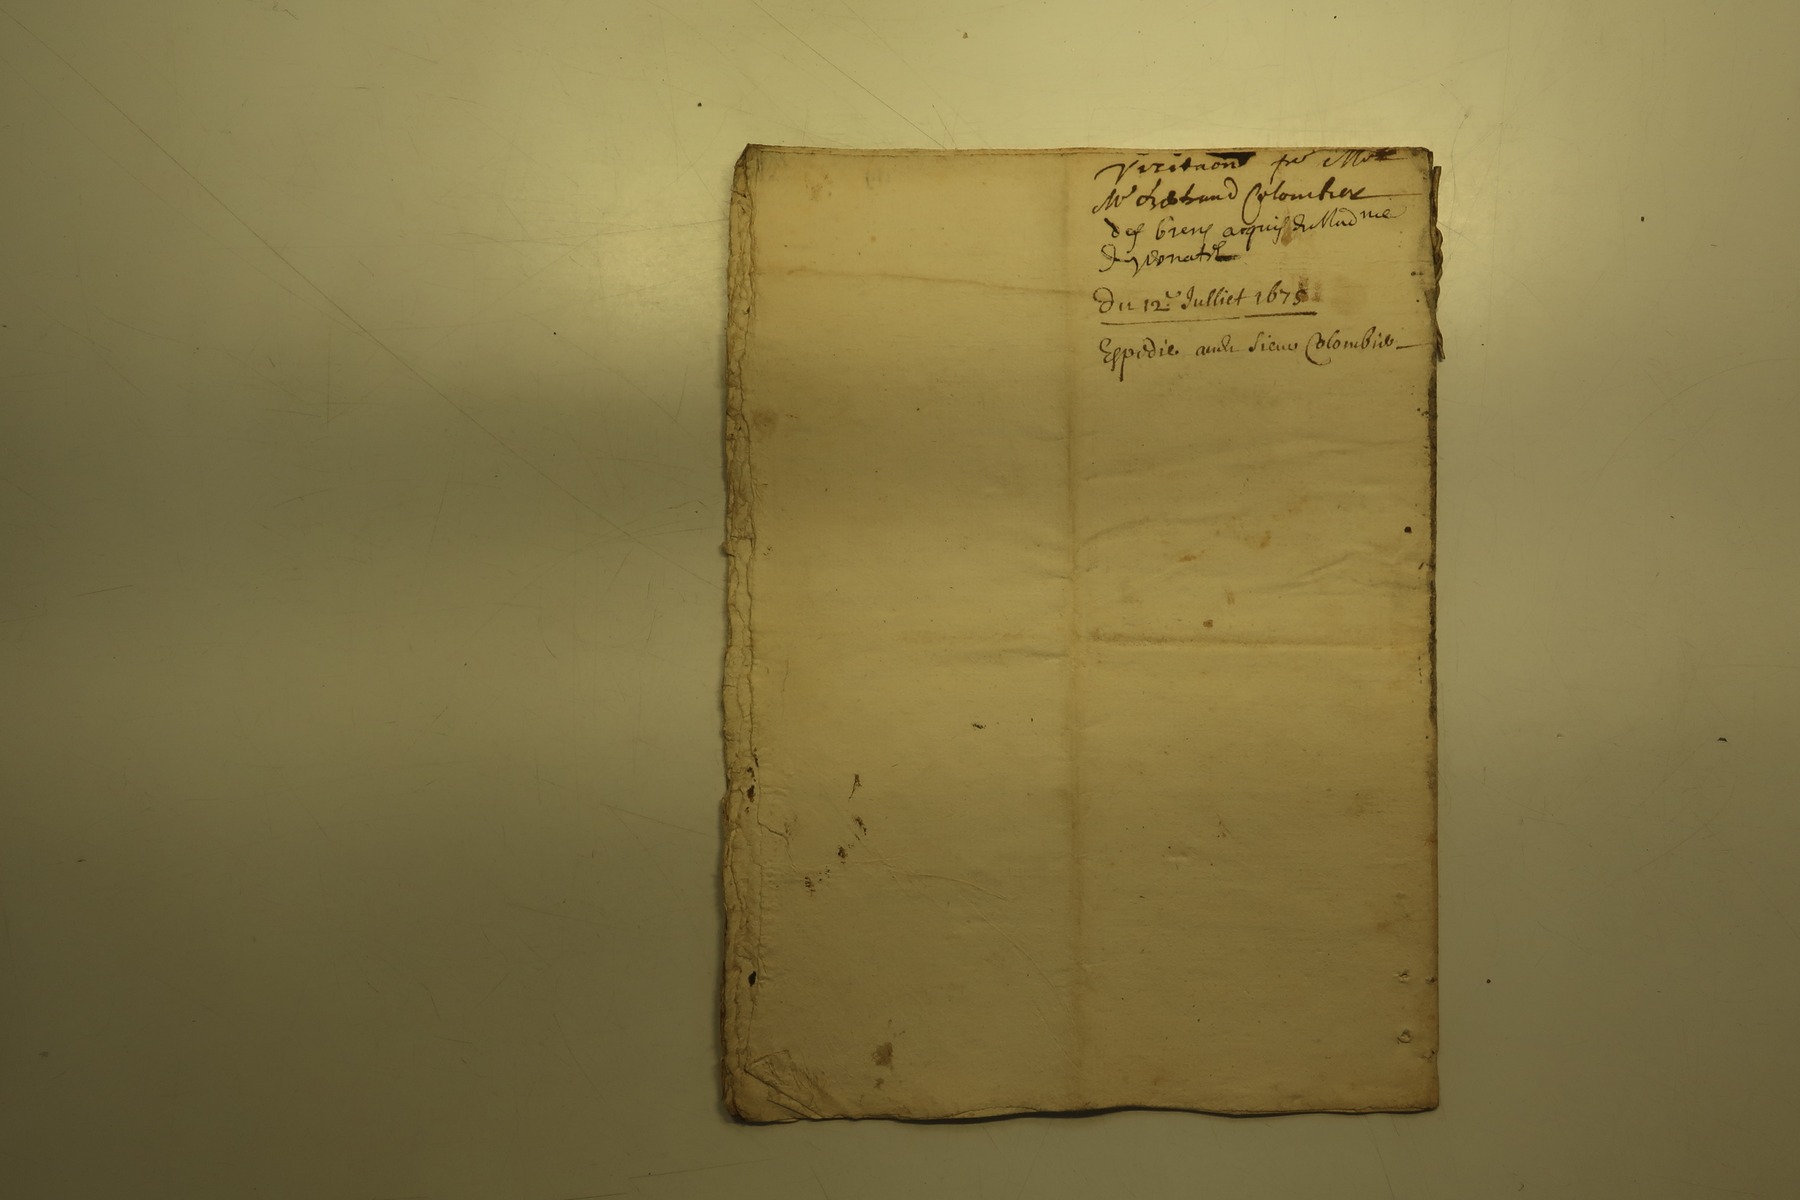 Visitaõn pr Mre
Me Colombier
des biens acquis de Madme
de
Du 12e Julliet 1675
Expedie audt sieur Colombier